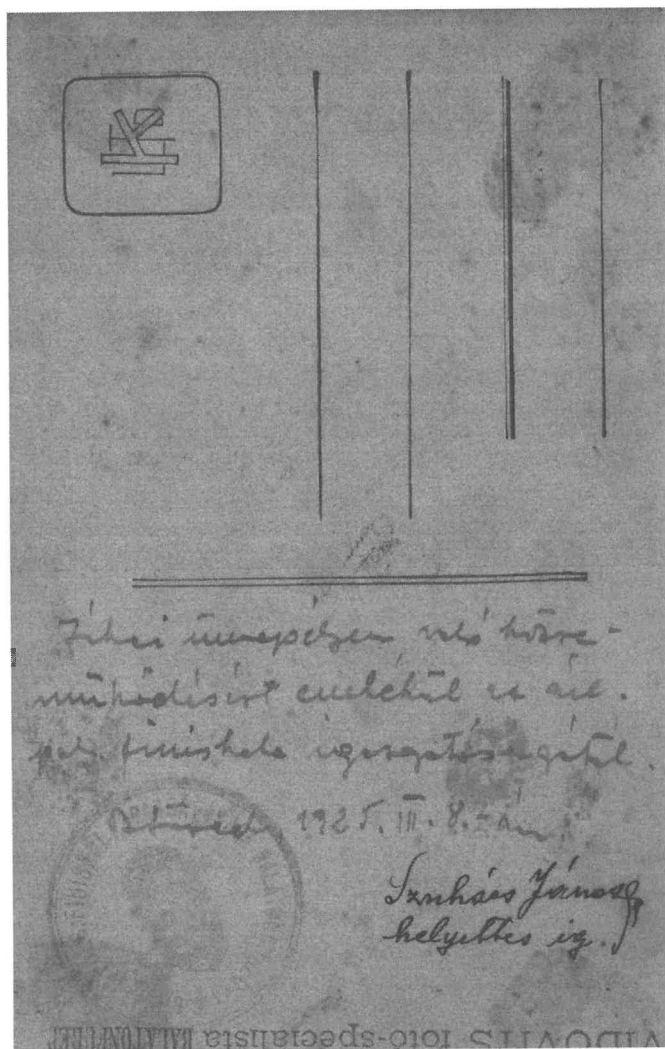 Jókai ünnepélyen való közre-
működésért emlékül az áll.
polg. fiúiskola igazgatóságától.
Bfüred, 1925. III. 8.-án.
Szuhács János
helyettes ig.
VIDOVITS fotó-specialista BALATONFÜRED